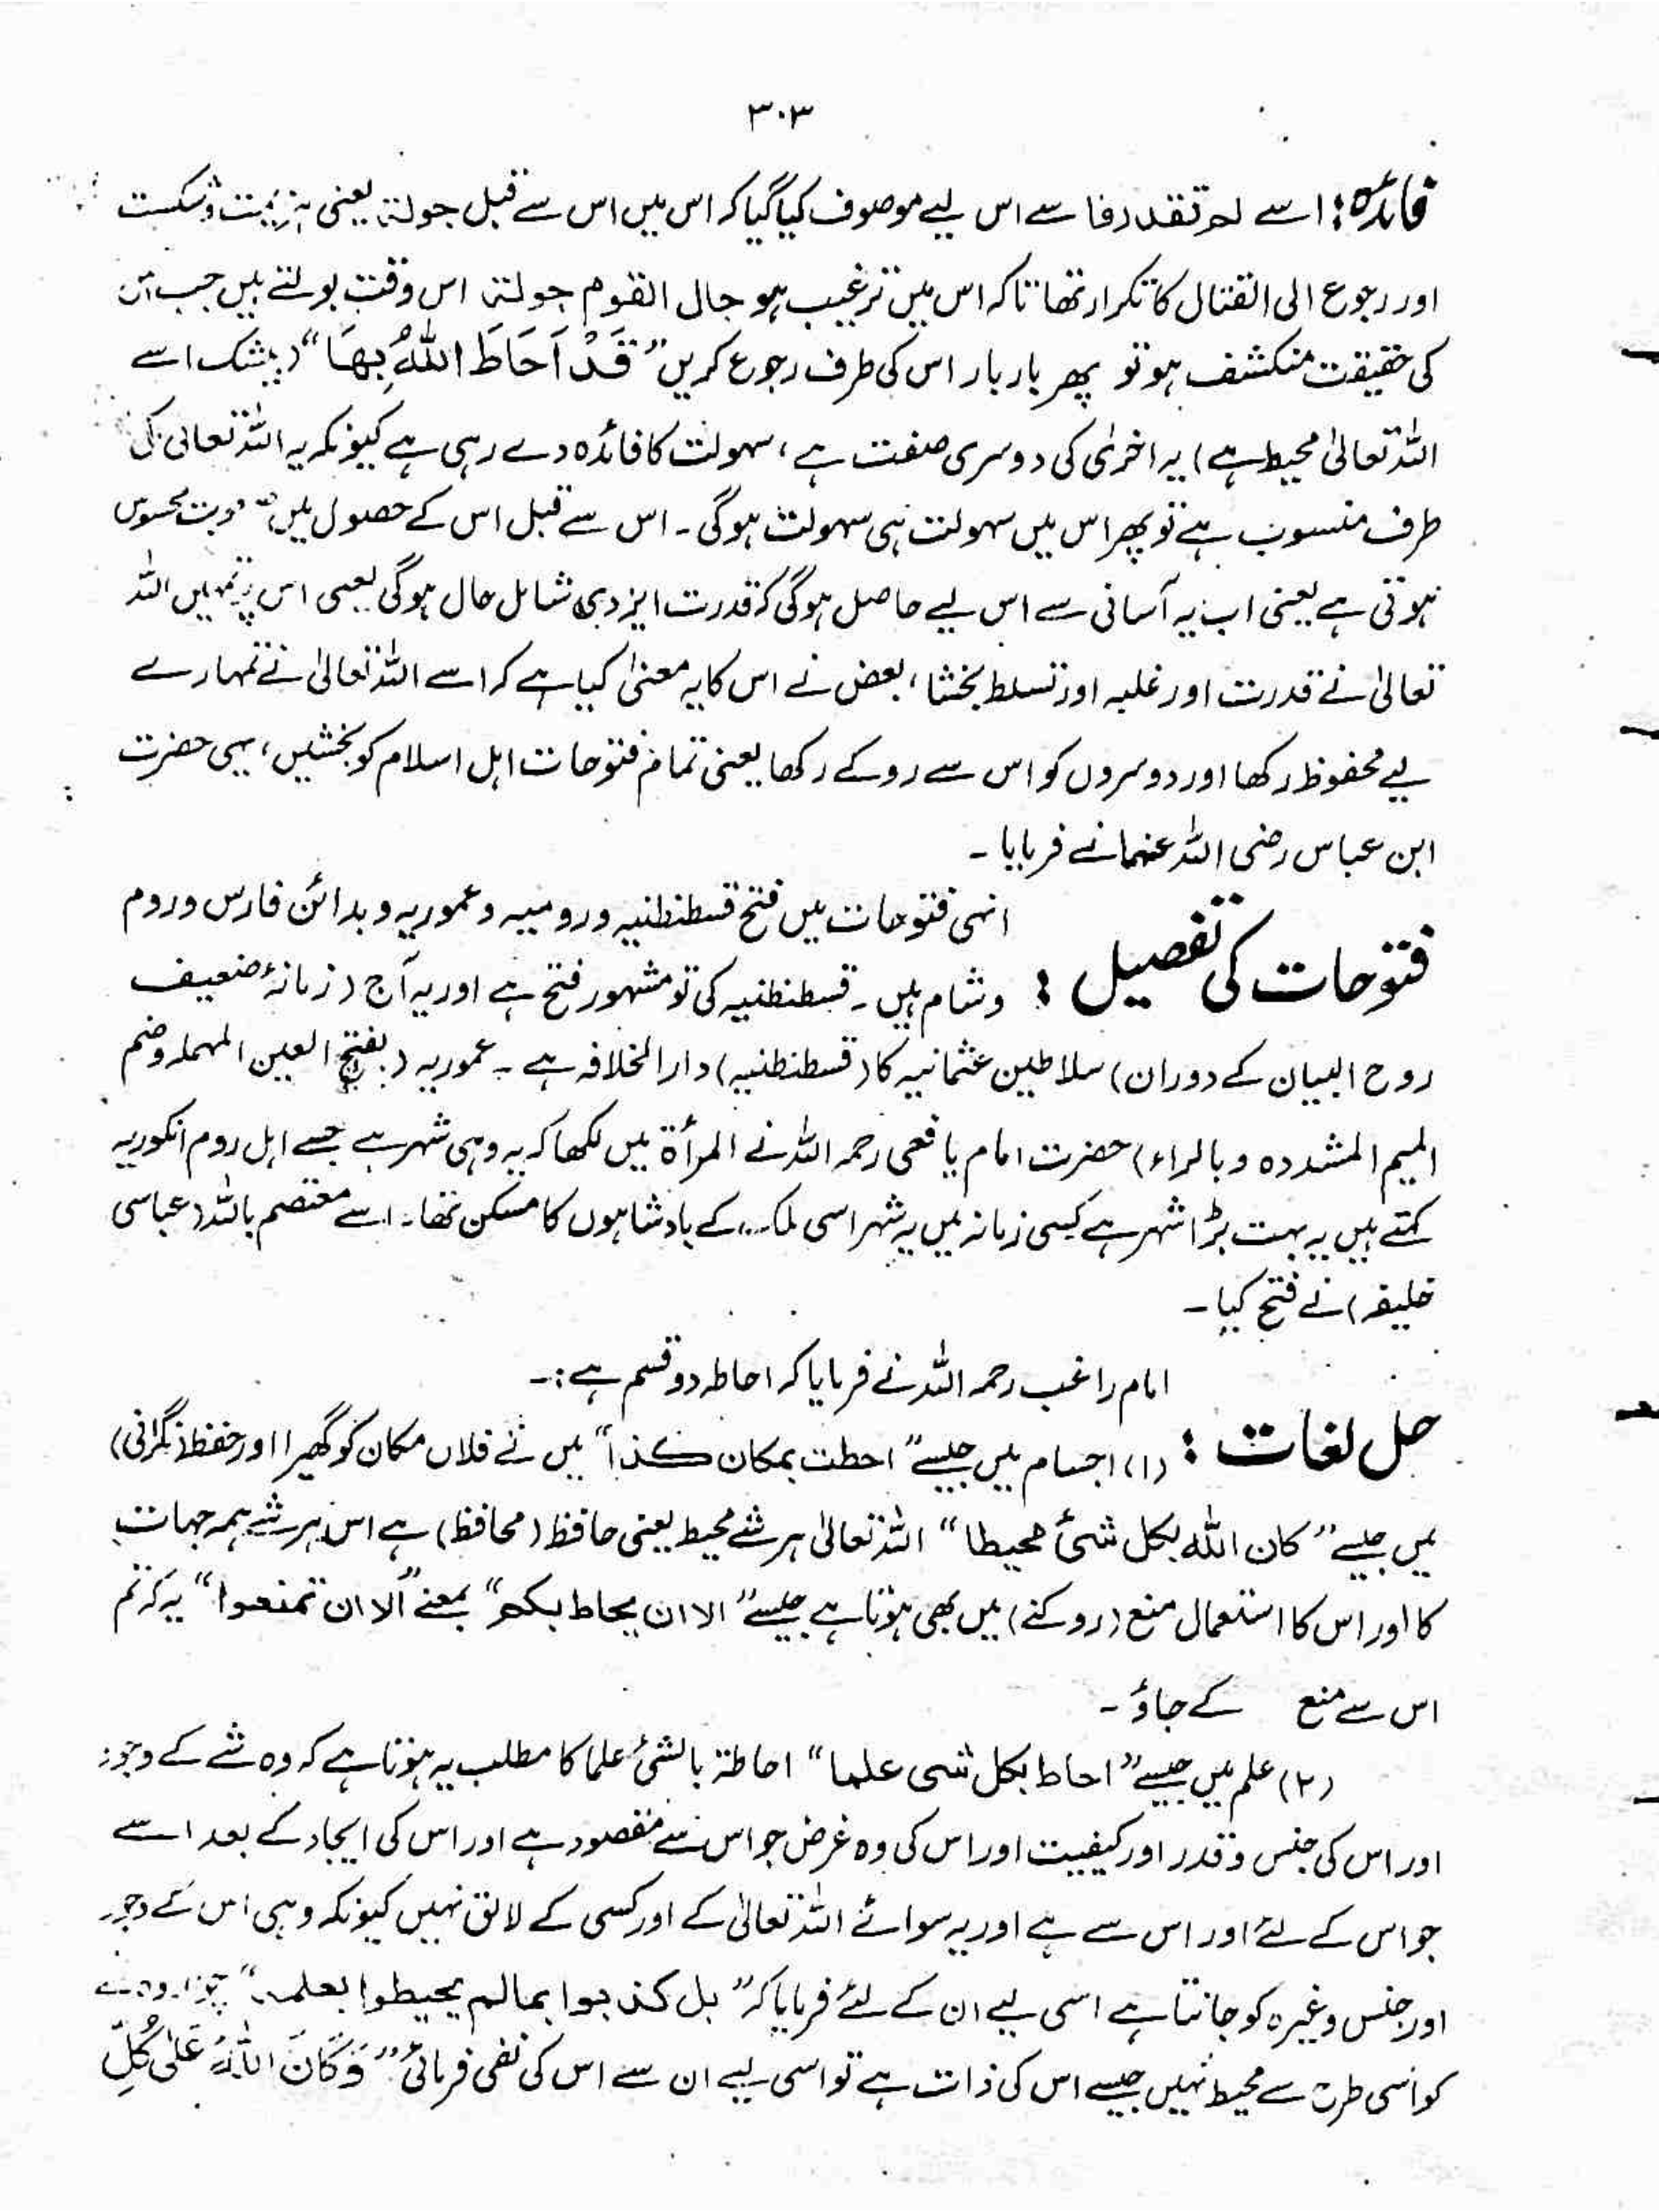 ۳۰۳
فائدہ: اسے لم تقدروا سے اس لیے موصوف کیا گیا کہ اس میں اس سے قبل جولۃ یعنی ہزیمت و شکست
اور رجوع الی القتال کا تکرار تھا تاکہ اس میں ترغیب ہو جال القوم جولۃ اس وقت بولتے ہیں جب ان
کی حقیقت منکشف ہو تو پھر بار بار اس کی طرف رجوع کریں ”قَدْ اَحَاطَ اللّٰہُ بِھَا“ (بیشک اسے
اللہ تعالیٰ محیط ہے) یہ اخریٰ کی دوسری صفت ہے، سہولت کا فائدہ دے رہی ہے کیونکہ یہ اللہ تعالیٰ کی
طرف منسوب ہے تو پھر اس میں سہولت ہی سہولت ہوگی۔ اس سے قبل اس کے حصول میں محسوس
ہوتی ہے یعنی اب یہ آسانی سے اس لیے حاصل ہوگی کہ قدرت ایزدی شامل حال ہوگی یعنی اس پر تمہیں اللہ
تعالیٰ نے قدرت اور غلبہ اور تسلط بخشا، بعض نے اس کا یہ معنیٰ کیا ہے کہ اسے اللہ تعالیٰ نے تمہارے
لیے محفوظ رکھا اور دوسروں کو اس سے روکے رکھا یعنی تمام فتوحات اہل اسلام کو بخشیں، یہی حضرت
ابن عباس رضی اللہ عنہما نے فرمایا۔
انہی فتوحات میں فتح قسطنطنیہ و رومیہ و عموریہ و مدائن فارس و روم
فتوحات کی تفصیل : و شام ہیں۔ قسطنطنیہ کی تو مشہور فتح ہے اور یہ آج (زمانۂ ضعیف
روح البیان کے دوران) سلاطین عثمانیہ کا (قسطنطنیہ) دارالخلافہ ہے۔ عموریہ (بفتح العین المہملہ وضم
المیم المشددہ و بالراء) حضرت امام یافعی رحمہ اللہ نے المرأۃ میں لکھا کہ یہ وہی شہر ہے جسے اہل روم انکوریہ
کہتے ہیں یہ بہت بڑا شہر ہے کسی زمانہ میں یہ شہر اسی ملک کے بادشاہوں کا مسکن تھا۔ اسے معتصم باللہ (عباسی
خلیفہ) نے فتح کیا۔
امام راغب رحمہ اللہ نے فرمایا کہ احاطہ دو قسم ہے :۔
حل لغات : (۱) اجسام میں جیسے ”احطت بمکان کذا“ میں نے فلاں مکان کو گھیرا اور حفظ (نگرانی)
میں جیسے ”کان اللہ بکل شئ محیطا“ اللہ تعالیٰ ہر شے محیط یعنی حافظ (محافظ) ہے اس ہر شے ہمہ جہات
کا اور اس کا استعمال منع (روکنے) میں بھی ہوتا ہے جیسے ”الا ان یحاط بکم“ بمعنے ”الا ان تمنعوا“ یہ کہ تم
اس سے منع کے جاؤ۔
(۲) علم میں جیسے ”احاط بکل شی علما“ احاطۃ بالشئ علما کا مطلب یہ ہوتا ہے کہ وہ شے کے وجود
اور اس کی جنس و قدر اور کیفیت اور اس کی وہ غرض جو اس سے مقصود ہے اور اس کی ایجاد کے بعد اسے
جو اس کے لئے اور اس سے ہے اور یہ سوائے اللہ تعالیٰ کے اور کسی کے لائق نہیں کیونکہ وہی اس کے وجود
اور جنس وغیرہ کو جانتا ہے اسی لیے ان کے لئے فرمایا کہ ”بل کذبوا بمالم یحیطوا بعلمہ“
کو اسی طرح سے محیط نہیں جیسے اس کی ذات ہے تو اسی لیے ان سے اس کی نفی فرمائی ”وَکَانَ اللّٰہُ عَلٰی کُلِّ